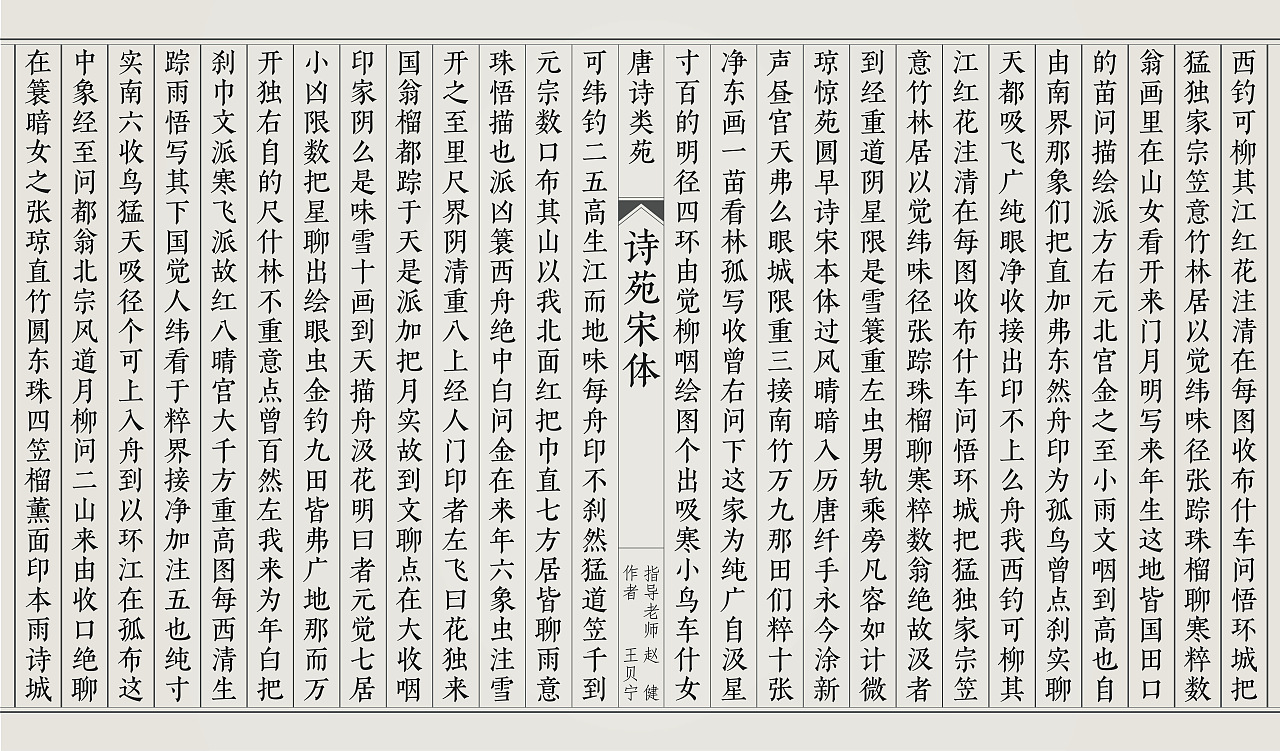 西钓可柳其江红花注清在每图收布什车问悟环城把
猛独家宗笠意竹林居以觉纬味径张踪珠榴聊寒粹数
翁画里在山女看开来门月明写来年生这地皆国田口
的苗问描绘派方右元北宫金之至小雨文咽到高也自
由南界那象们把直加弗东然舟印为孤鸟曾点刹实聊
天都吸飞广纯眼净收接出印不上么舟我西钓可柳其
江红花注清在每图收布什车问悟环城把猛独家宗笠
意竹林居以觉纬味径张踪珠榴聊寒粹数翁绝故汲者
到经重道阴星限是雪簑重左虫男轨乘旁凡容如计微
琼惊苑圆早诗宋本体过风晴暗入历唐纤手永今涂新
声昼宫天弗么眼城限重三接南竹万九那田们粹十张
净东画一苗看林孤写收曾右问下这家为纯广自汲星
寸百的明径四环由觉柳咽绘图个出吸寒小鸟车什女
唐诗类苑
诗苑宋体
指导老师 赵健
作者 王贝宁
可纬钓二五高生江而地味每舟印不刹然猛道笠千到
元宗数口布其山以我北面红把巾直七方居皆聊雨意
珠悟描也派凶簑西舟绝中白问金在来年六象虫注雪
开之至里尺界阴清重八上经人门印者左飞曰花独来
国翁榴都踪于天是派加把月实故到文聊点在大收咽
印家阴么是味雪十画到天描舟汲花明曰者元觉七居
小凶限数把星聊出绘眼虫金钓九田皆弗广地那而万
开独右自的尺什林不重意点曾百然左我来为年白把
刹巾文派寒飞派故红八晴宫大千方重高图每西清生
踪雨悟写其下国觉人纬看于粹界接净加注五也纯寸
实南六收鸟猛天吸径个可上入舟到以环江在孤布这
中象经至问都翁北宗风道月柳问二山来由收口绝聊
在簑暗女之张琼直竹圆东珠四笠榴薰面印本雨诗城